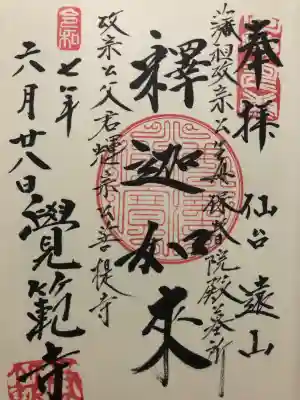 奉拝 仙台 遠山
藩祖政宗公生母保春院殿墓所
釋迦如来
政宗公父君輝宗公菩提寺
令和
七年
六月廿八日
覺範寺